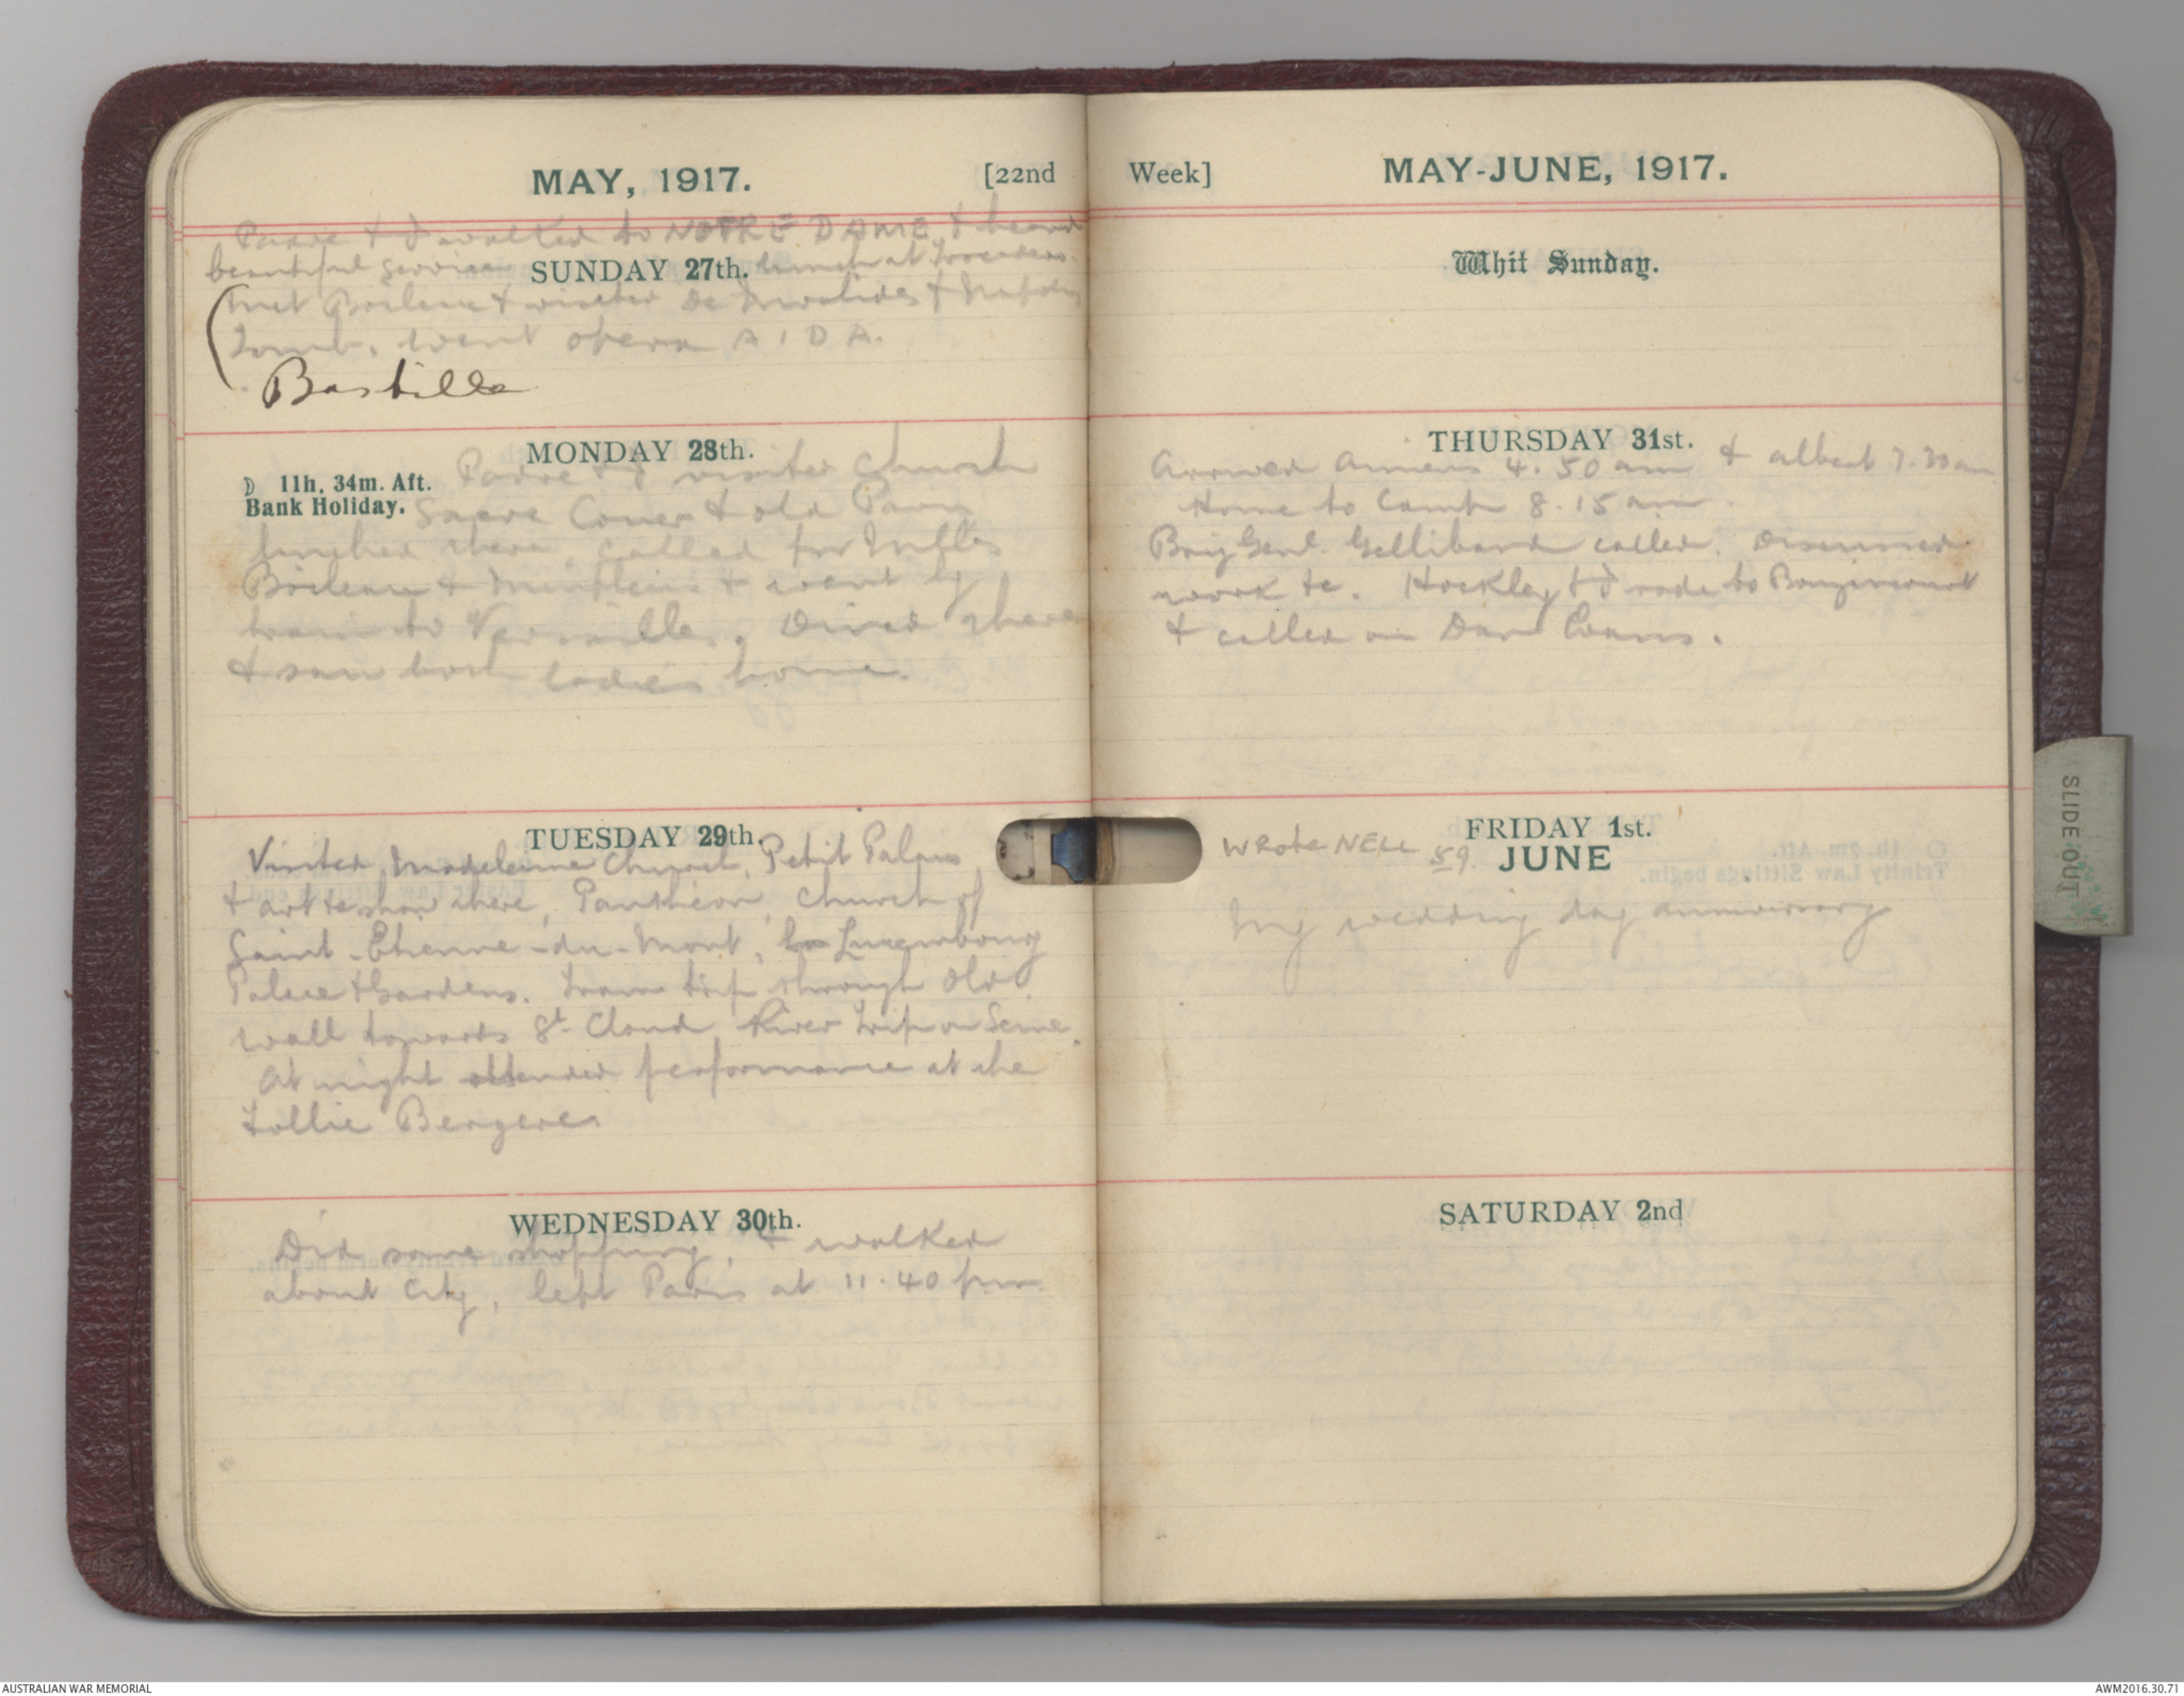 MAY, 1917. [22nd
Padre & I walked to NOTRE DAME & heard
beautiful service SUNDAY 27th. lunch at Trocadero.
(met Boileau & visited De Invalides &
Tomb. went opera AIDA.
Bastille
MONDAY 28th.
☽ 11h. 34m. Aft.
Bank Holiday.
Padre & I visited Church
Sacre Couer & old Paris
lunched there, called for Mdlles
Boileau & & went by
train to Versailles. Dined there
& saw both ladies home.
TUESDAY 29th.
Visited Madeleine Church, Petit Palais
& art show there, Pantheon, Church of
Saint-Etienne-du-Mont, Luxembourg
Palace & Gardens. Tram trip through old
wall towards St Cloud River trip on Seine.
At night attended performance at the
Follie Bergeres
WEDNESDAY 30th.
Did some shopping, & walked
about city, left Paris at 11.40 pm
Week] MAY-JUNE, 1917.
Whit Sunday.
THURSDAY 31st.
Arrived Amiens 4.50 am & albert 7.30 am
Home to Camp 8.15 am.
Brig Genl. Gellibrand called. Discussed
work &c. Hockley & I rode to
& called on Dan Evans.
Wrote NELL 59.
FRIDAY 1st.
JUNE
My wedding day anniversary
SATURDAY 2nd
SLIDE OUT
AUSTRALIAN WAR MEMORIAL
AWM2016.30.71